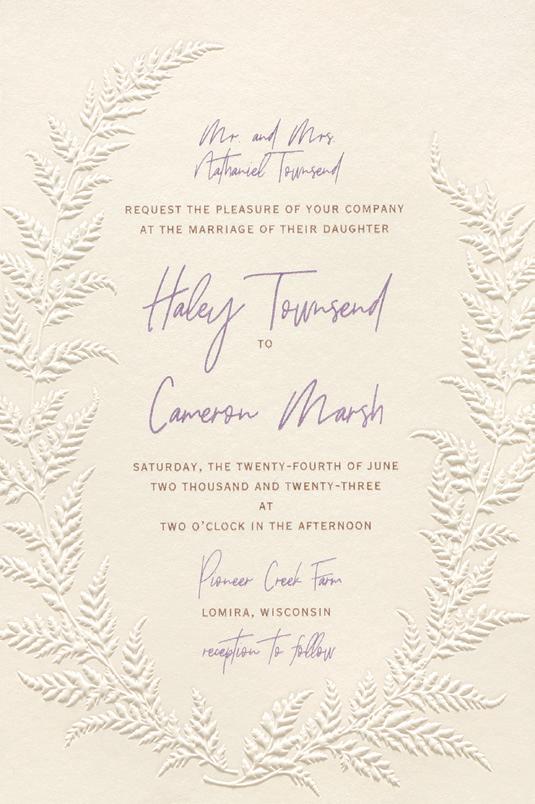 Mr. and Mrs.
Nathaniel Townsend
REQUEST THE PLEASURE OF YOUR COMPANY
AT THE MARRIAGE OF THEIR DAUGHTER
Haley Townsend
TO
Cameron Marsh
SATURDAY, THE TWENTY-FOURTH OF JUNE
TWO THOUSAND AND TWENTY-THREE
AT
TWO O'CLOCK IN THE AFTERNOON
Pioneer Creek Farm
LOMIRA, WISCONSIN
reception to follow